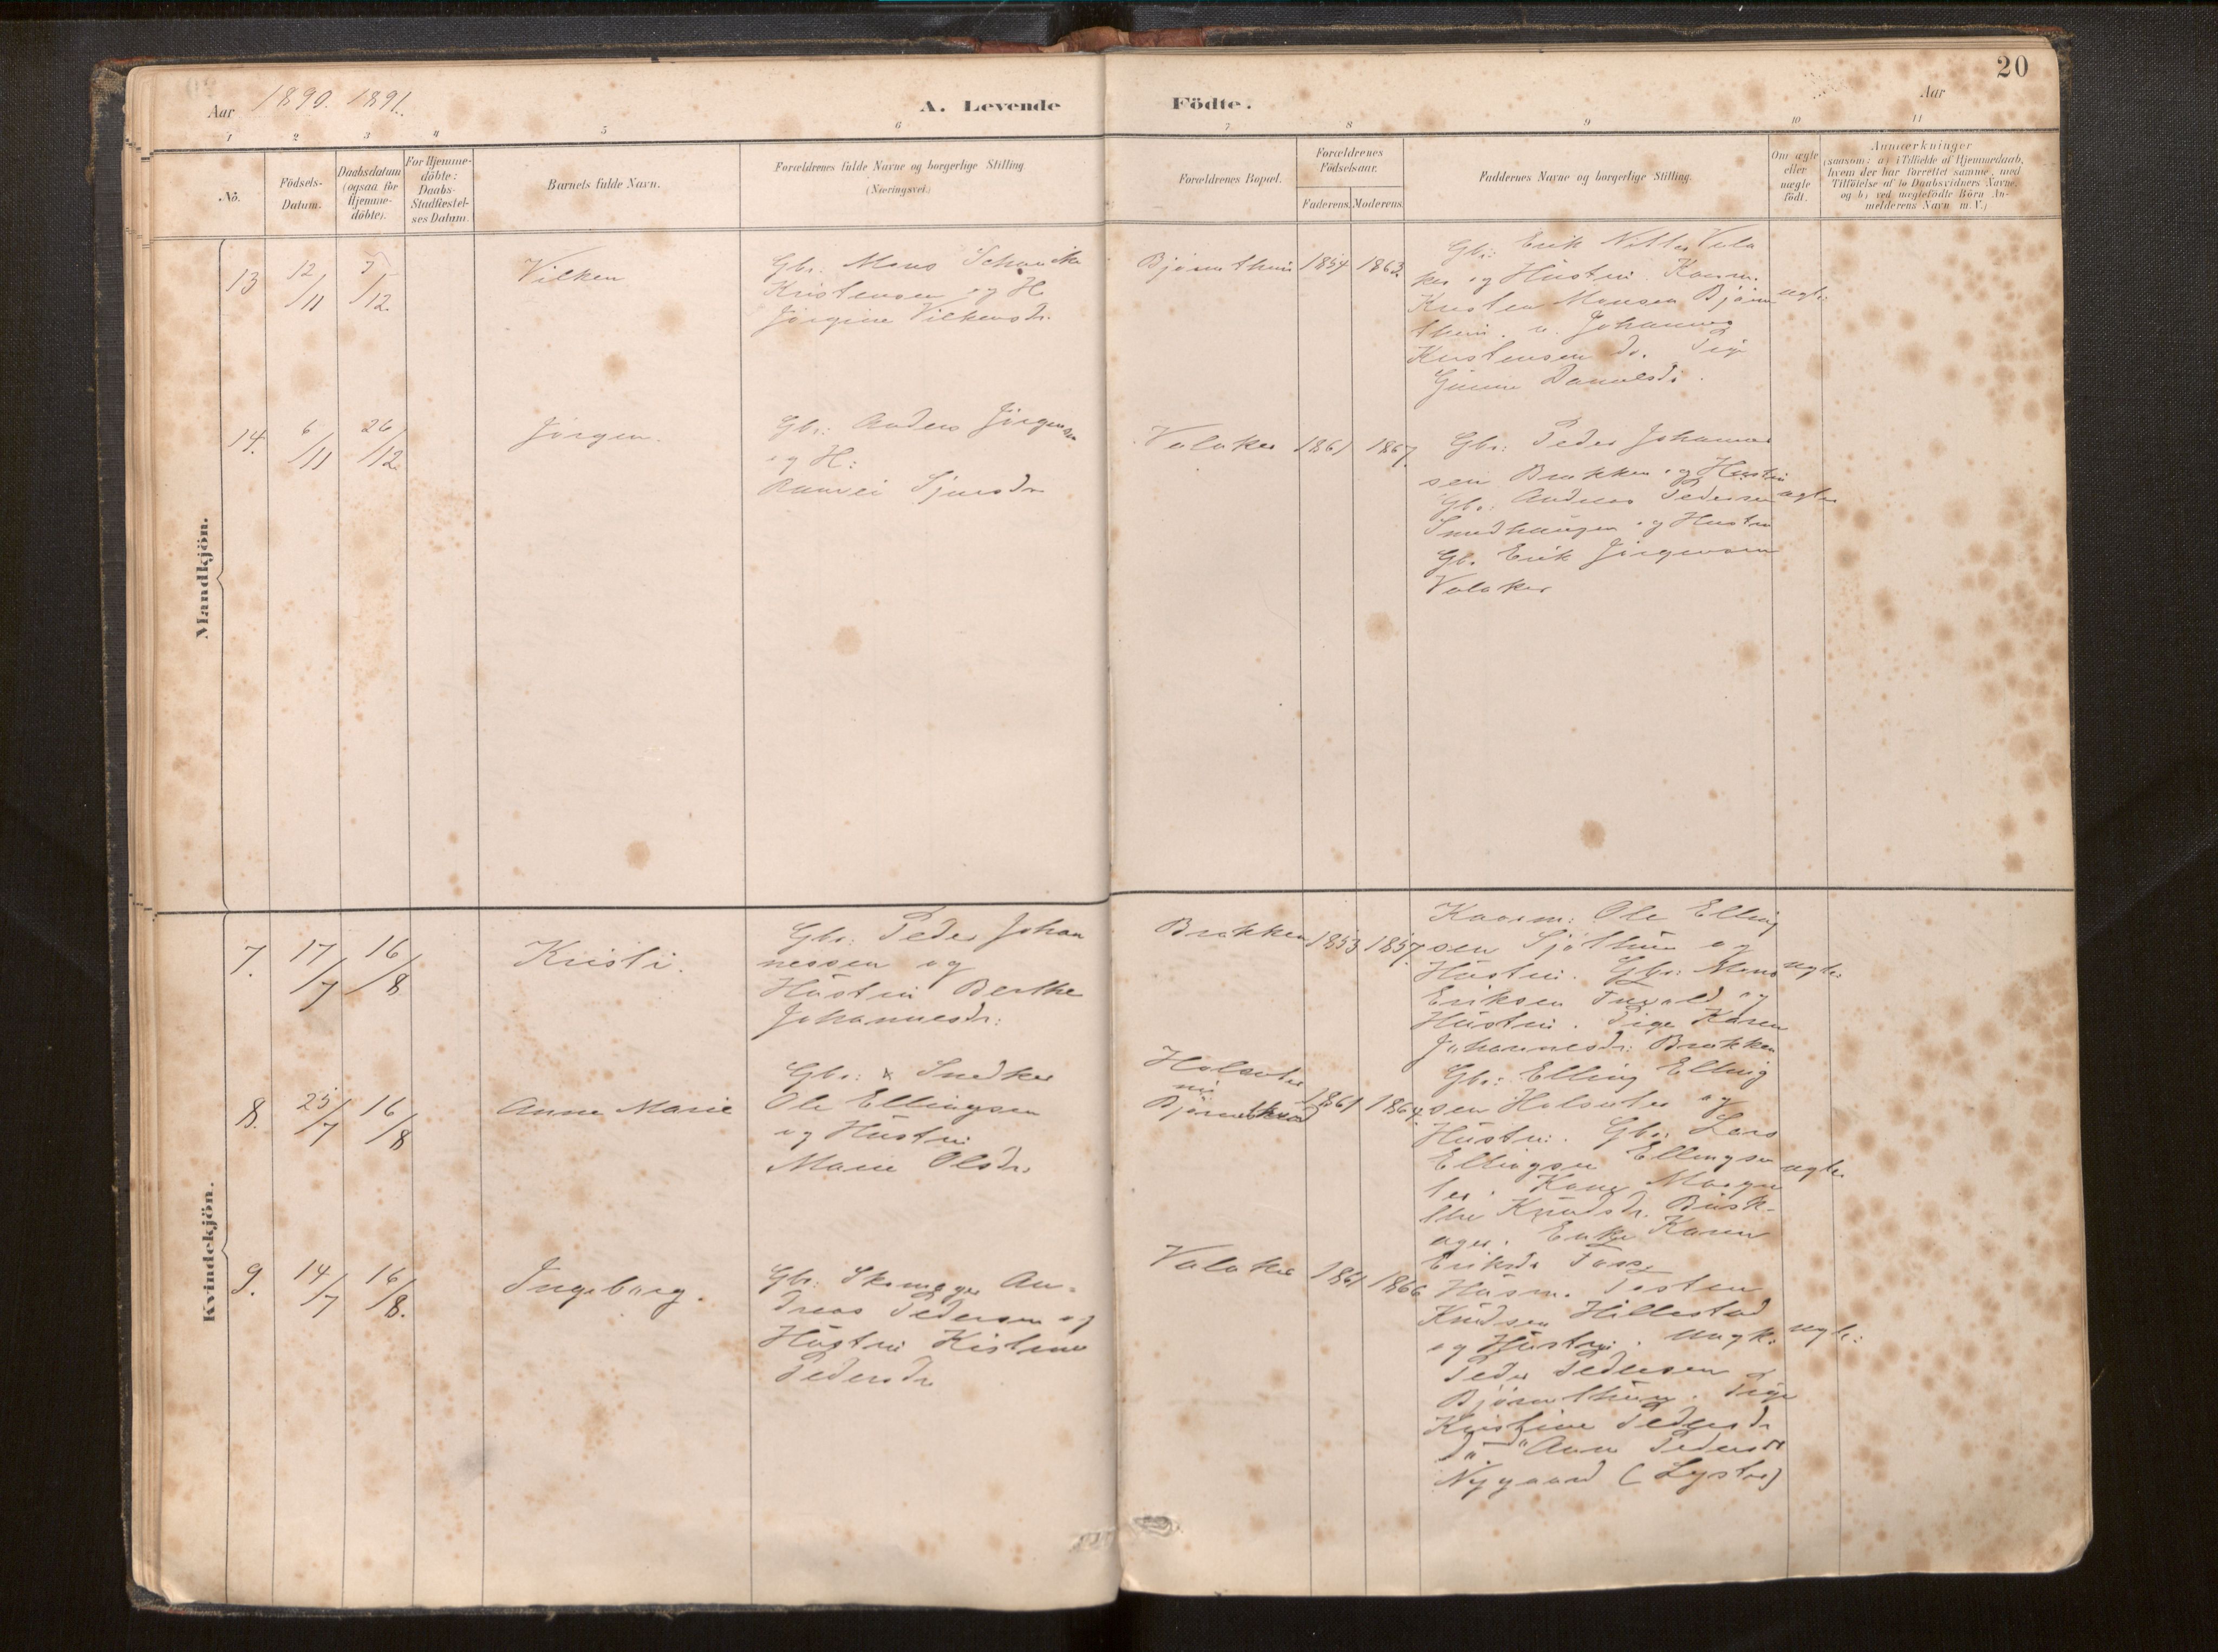 20
Aar 1890. 1891.
A. Levende Födte.
Aar
1 2 3 4 5 6 7 8 9 10 11
No.
Födsels-
Datum.
Daabsdatum
(ogsaa for
Hjemme-
döbte).
For Hjemme-
döbte:
Daabs-
Stadfæstel-
ses Datum.
Barnets fulde Navn.
Forældrenes fulde Navne og borgerlige Stilling.
(Næringsvei.)
Forældrenes Bopæl.
Forældrenes
Födselsaar.
Faderens. Moderens.
Faddernes Navne og borgerlige Stilling.
Om ægte
eller
uægte
födt.
Anmærkninger
(saasom: a) i Tilfælde af Hjemmedaab,
hvem der har forrettet samme, med
Tilföielse af to Daabsvidners Navne,
og b) ved uægtefödte Börn An-
melderens Navn m.V.)
Mandkjön.
13
12/11
5/12.
Vilken
Gbr. Mons
Kristensen og H.
Jörgine Vilkensdr.
Bjørnthun
1854
1863.
Gbr. Erik Vola
ker og Hustru. Kaarm.
Kristen Monsen Bjørn
thun. u. Johannes
Kristensen do. Pige
Gunne Danielsdr.
ægte
14.
6/11
26/12.
Jörgen.
Gbr: Anders Jörgensen
og H:
Ranvei Sjursdr
Volaker
1861
1867.
Gbr: Peder Johannes
sen Brakken og Hustru
Gbr. Andreas Pedersen
Smedhaugen og Hustru
Gbr Erik Jörgensen
Volaker
ægte
Kvindekjön.
7.
17/7
16/8
Kristi.
Gbr: Peder Johan
nessen og
Hustru Berthe
Johannesdr:
Brakken
1853
1857.
Kaarm: Ole Elling
sen Sjöthun og
Hustru. Gbr: Mons
Eriksen Tuvold og
Hustru. Pige Karen
Johannesdr: Brakken
ægte
8.
25/7
16/8
Anne Marie
Gbr: Snedker
Ole Ellingsen
og Hustru
Marie Olsdr.
Holsæter
1861
1864.
Gbr: Elling Elling
sen Holsæter og
Hustru. Gbr: Lars
Ellingsen Ellingsæ
ter. Kone Margre
the Knudsdr. Busk-
ager. Enke Karen
Eriksdr Fosse
ægte
9.
14/7
16/8.
Ingeborg.
Gbr. Skomager An-
dreas Pedersen og
Hustru Kistine
Pedersdr
Volaker
1861
1866
Husm. Tosten
Knudsen Hillestad
og Hustru. Ungk.
Peder Pedersen
Bjørnthun. Pige
Kristine Pedersdr
d" d" Anne Pedersdr
Nygaard (Lyster)
ægte: